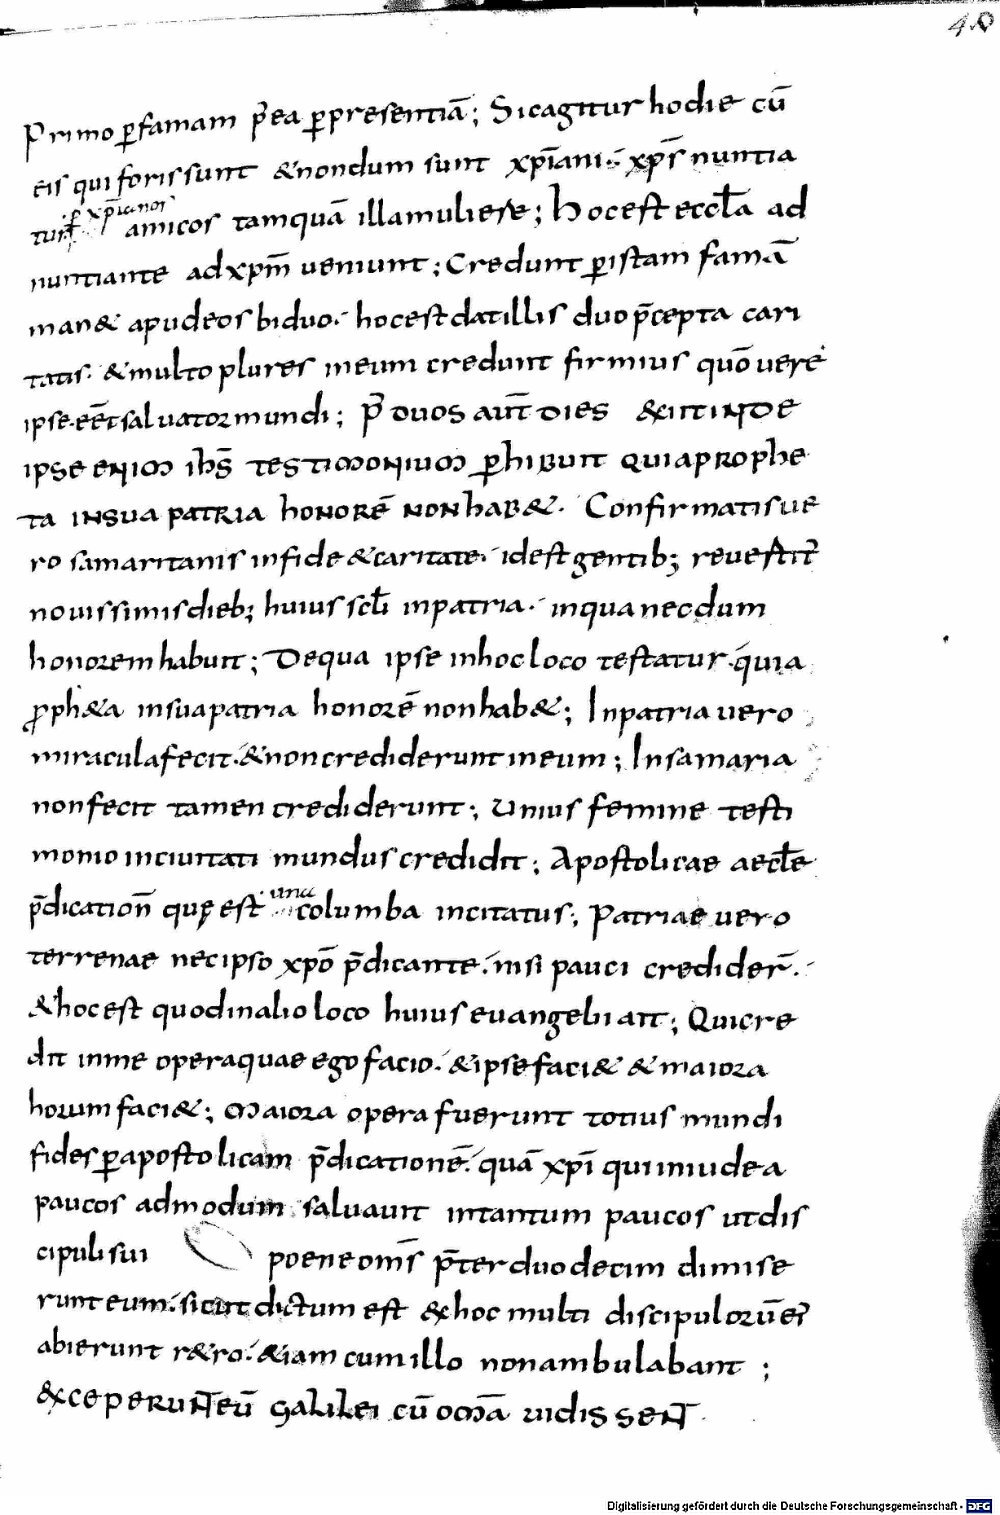 40
Primo ꝑfamam p̄ea ꝑpresentiā; Sicagitur hodie cū
eis qui foris sunt &nondum sunt xp̄iani· xp̄s nuntia
tur ꝑ xp̄ianos amicos tamquā illa muliere; Hocest eccl̄a ad
nuntiante adxpm̄ ueniunt; Credunt ꝑistam famā
man& apudeos biduo· hocest dat illis duo p̄cepta cari
tatis· &multo plures ineum credunt firmius quō uere
ipse· eēt saluator mundi; P̄ duos aut̄ dies &iit inde
ipse enim ih̄s testimonium ꝑhibuit quia prophe
ta insua patria honorē non hab&· Confirmatis ue
ro samaritanis infide &caritate· idest gentib; reuestit᷒
nouissimis dieb; huius scl̄i inpatria· inqua necdum
honorem habuit; Dequa ipse inhoc loco testatur· quia
ꝓph&a insua patria honorē non hab&; Inpatria uero
miracula fecit· &non crediderunt ineum; Insamaria
non fecit tamen crediderunt; Unius femine testi
monio inciuitati mundus credidit; Apostolicae aeccl̄e
p̄dication̄ quę est una columba incitatus; Patriae uero
terrenae nec ipso xpō p̄dicante· nisi pauci credider̄·
&hoc est quod inalio loco huius euangelii ait; Qui cre
dit inme opera quae ego facio· &ipse faci& &maiora
horum faci&; Maiora opera fuerunt totius mundi
fides ꝑapostolicam p̄dicationē· quā xpī qui iniudea
paucos admodum saluauit intantum paucos utdis
cipuli sui poene om̄s p̄ter duodecim dimise
runt eum· sicut dictum est &x hoc multi discipulorū ei᷒
abierunt r&ro· &iam cum illo non ambulabant ;
&xceperunt eū galilei cū om̄a uidissent·
Digitalisierung gefördert durch die Deutsche Forschungsgemeinschaft - DFG